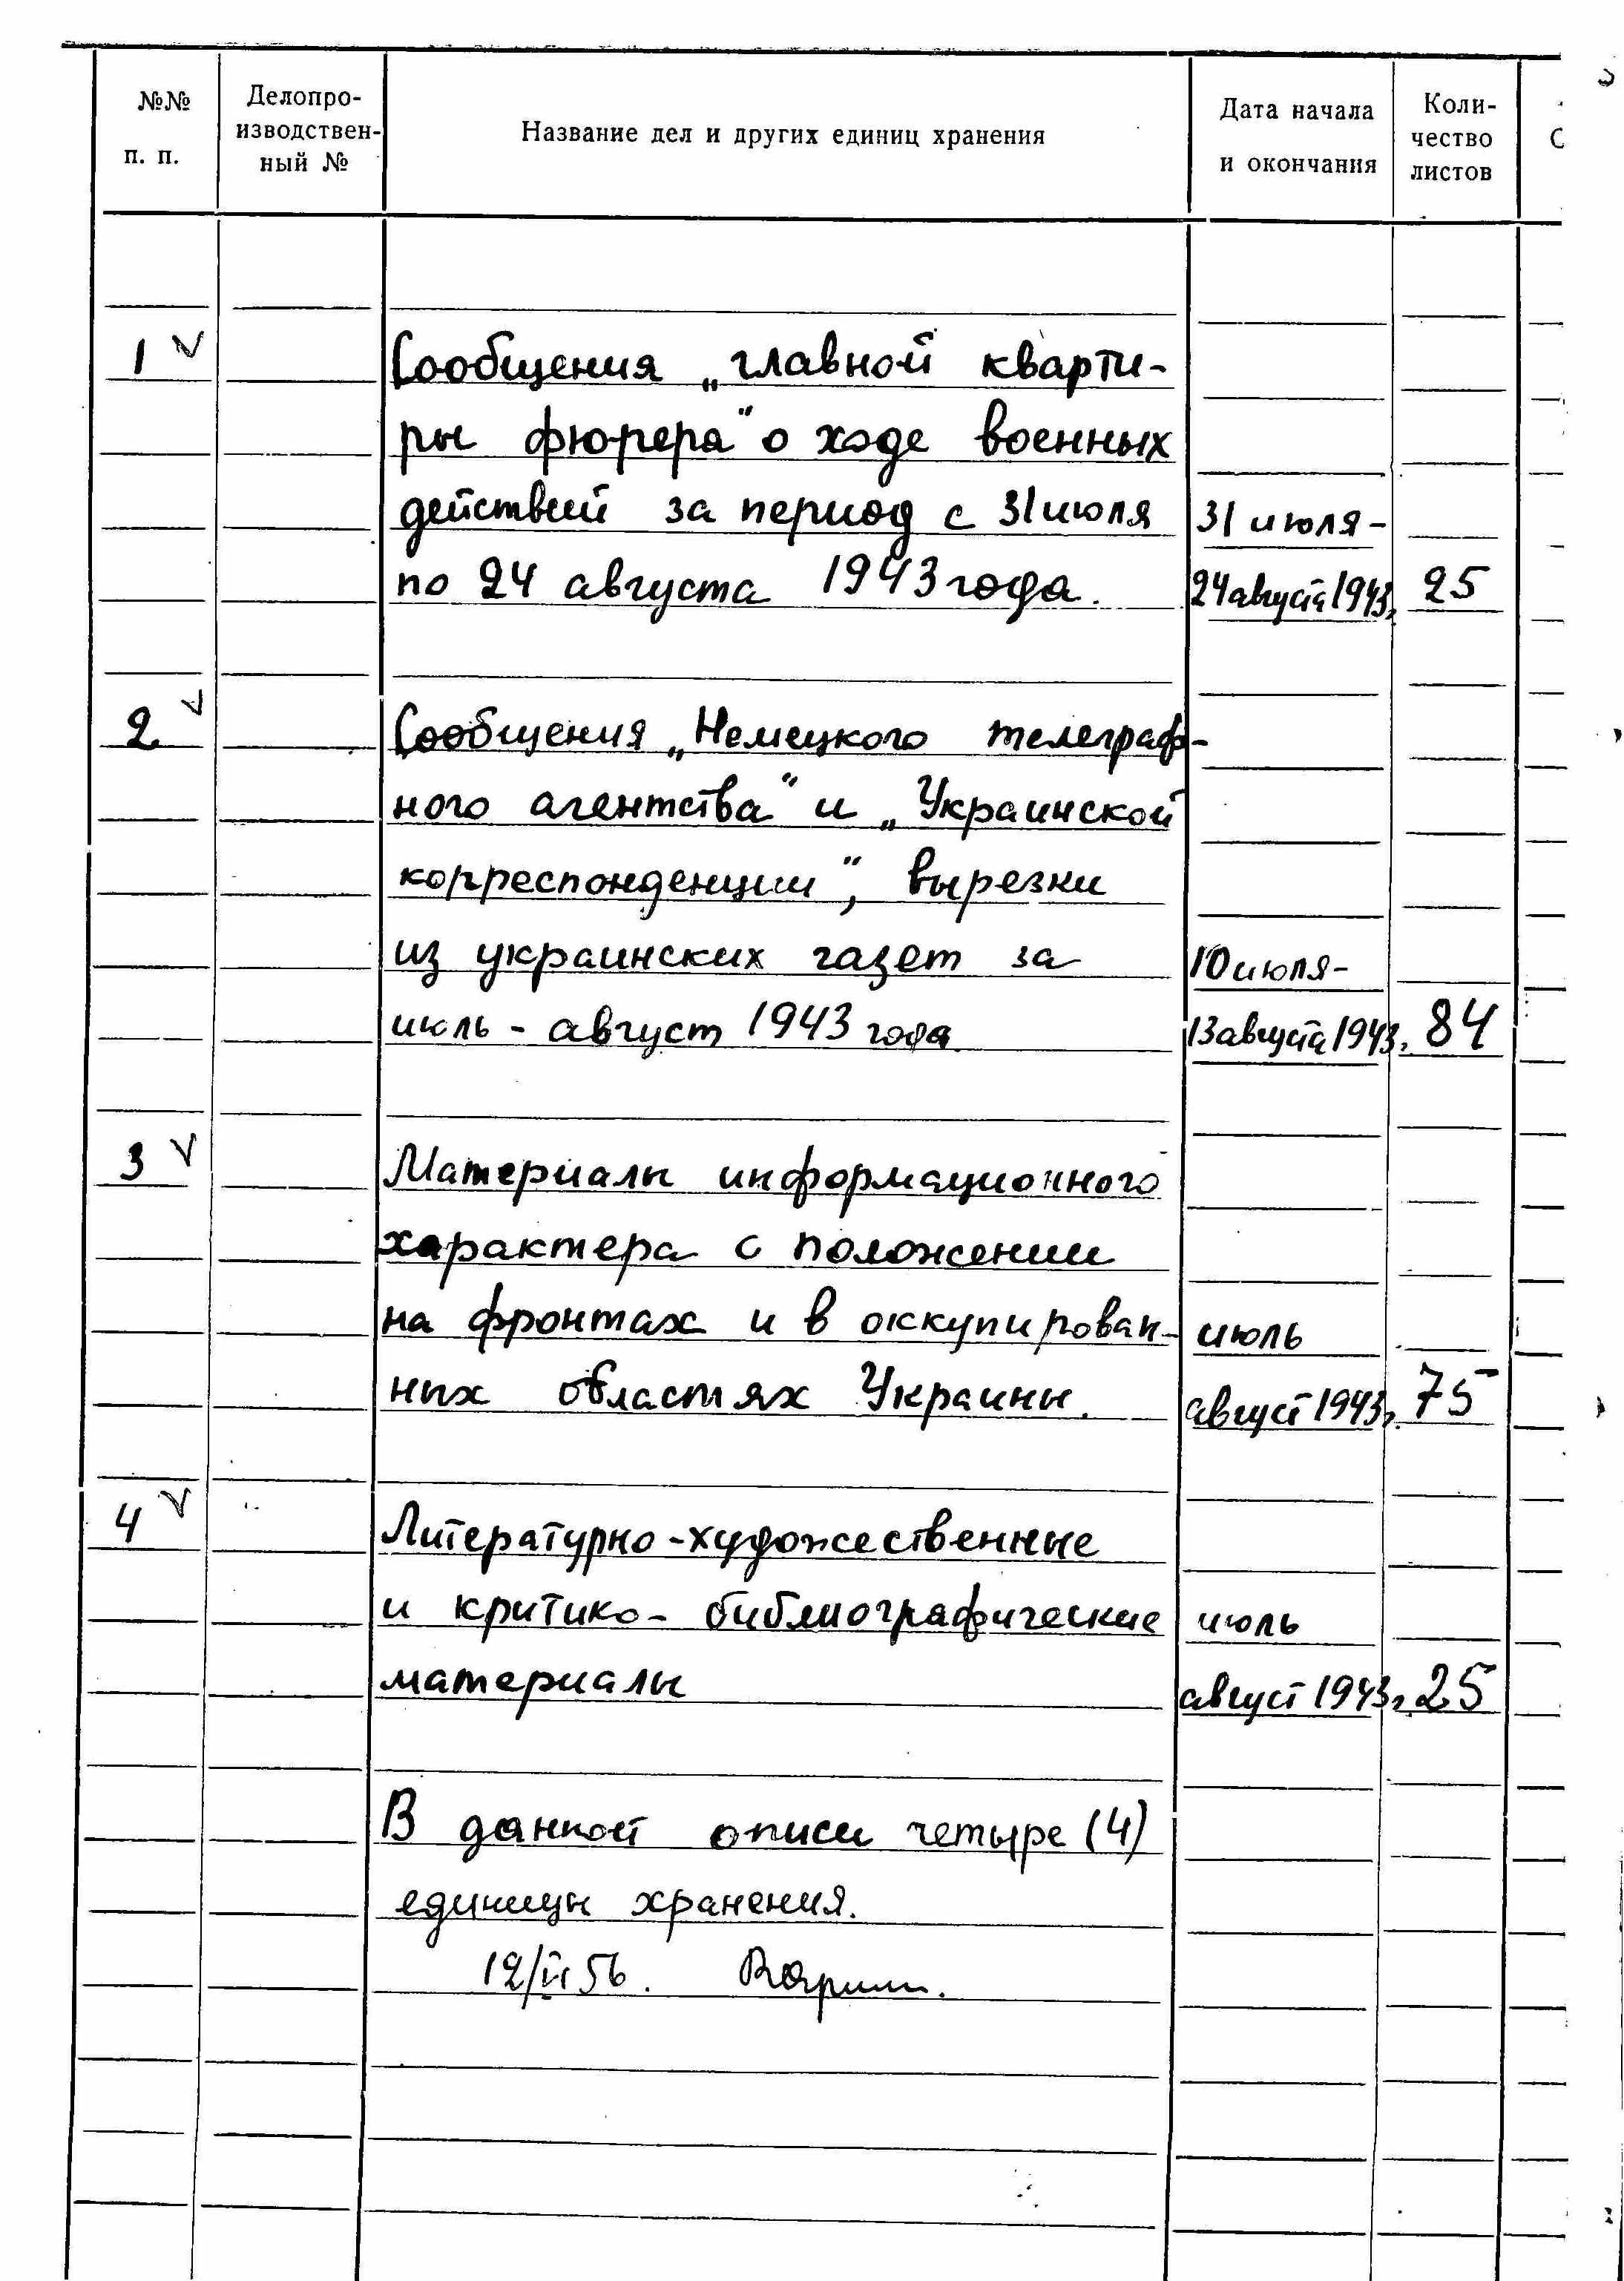 №№ п. п.
Делопроизводственный №
Название дел и других единиц хранения
Дата начала и окончания
Количество листов
С
1 ✓
Сообщения „главной кварти-
ры фюрера" о ходе военных
действий за период с 31 июля
31 июля -
по 24 августа 1943 года.
24 августа 1943г.
25
2 ✓
Сообщения „Немецкого телеграф-
ного агентства" и „Украинской
корреспонденции", вырезки
из украинских газет за
10 июля -
июль - август 1943 года
13 августа 1943г.
84
3 ✓
Материалы информационного
характера о положении
на фронтах и в оккупирован-
июль
ных областях Украины.
август 1943г.
75
4 ✓
Литературно-художественные
и критико-библиографические
июль
материалы
август 1943г.
25
В данной описи четыре (4)
единицы хранения.